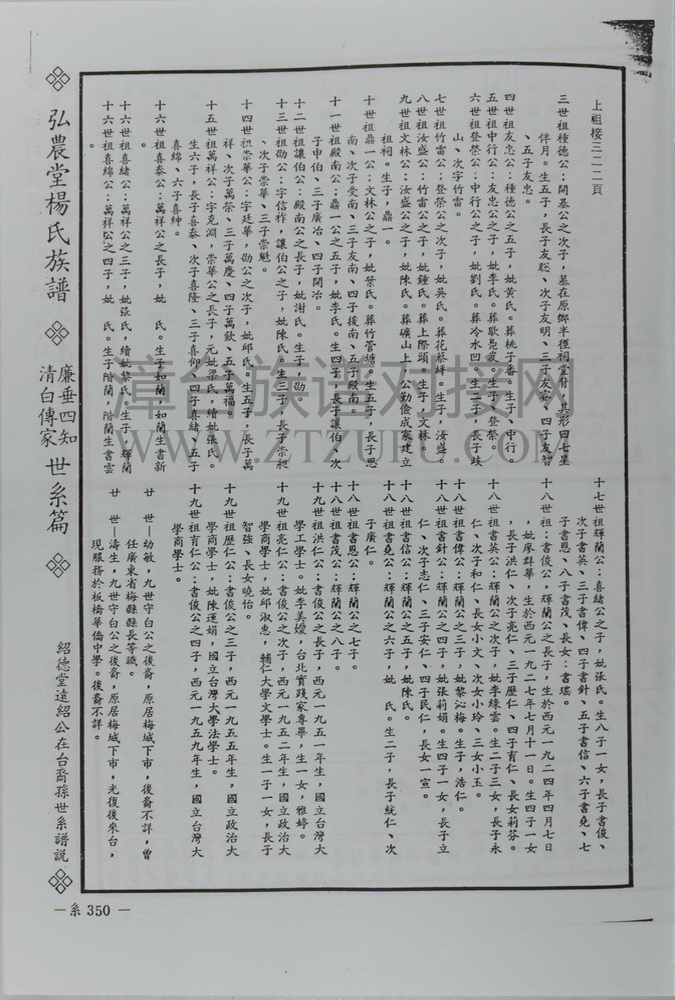 上祖接三二二頁
三世祖種德公：開基公之次子，墓在原鄉半徑祠堂背，其形曰七星
伴月。生五子，長子友聰、次子友明、三子友容、四子友智
、五子友忠。
四世祖友忠公：種德公之五子，妣黃氏。葬桃子番，生子、中行。
五世祖中行公：友忠公之子，妣李氏。葬歇馬寂，生子、登榮。
六世祖登榮公：中行公之子，妣劉氏。葬冷水凹。生二子，長子歧
山、次子竹雷。
七世祖竹雷公：登榮公之次子，妣吳氏。葬花蔡坪。生子，汝盛。
八世祖汝盛公：竹雷公之子，妣鍾氏。葬上際頭。生子，文林。
九世祖文林公：汝盛公之子，妣陳氏。葬礦山上，公勤儉成家建立
祖祠。生子，鼎一。
十世祖鼎一公：文林公之子，妣葉氏。葬竹管塘。生五子，長子思
南、次子受南、三子友南、四子援南、五子殿南。
十一世祖殿南公：鼎一公之五子，妣李氏。生四子，長子讓伯、次
子申伯、三子廣冶、四子開冶。
十二世祖讓伯公：殿南公之長子，妣謝氏。生子，劭。
十三世祖劭公：字信祚，讓伯公之子，妣陳氏。生三子，長子崇昶
、次子崇華、三子崇魁。
十四世祖崇華公：字廷華，劭公之次子，妣邱氏。生五子，長子萬
祥、次子萬榮、三子萬慶、四子萬欽、五子萬福。
十五世祖萬祥公：字克淵，崇華公之長子，元妣梁氏，續妣張氏。
生六子，長子喜泰、次子喜隆、三子喜仰、四子喜緒、五子
喜綿、六子喜紳。
十六世祖喜泰公：萬祥公之長子，妣　氏。生子如蘭，如蘭生書新
。
十六世祖喜緒公：萬祥公之三子，妣張氏，續妣黎氏。生子，輝蘭
十六世祖喜綿公：萬祥公之四子，妣　氏。生子階蘭，階蘭生書雲
。
十七世祖輝蘭公：喜緒公之子，妣張氏。生八子一女，長子書俊、
次子書英、三子書偉、四子書針、五子書信、六子書堯、七
子書恩、八子書茂、長女：書瑤。
十八世祖：書俊公，輝蘭公之長子，生於西元一九二四年四月七日
，妣廖群華，生於西元一九二七年七月十一日。生四子一女
，長子洪仁、次子亮仁、三子歷仁、四子育仁、長女莉芬。
十八世祖書英公：輝蘭公之次子，妣李綠雲。生二子三女，長子永
仁、次子和仁、長女小文、次女小玲、三女小玉。
十八世祖書偉公：輝蘭公之三子，妣黎沁梅。生子，浩仁。
十八世祖書針公：輝蘭公之四子，妣張莉娟。生四子一女，長子立
仁、次子志仁、三子安仁、四子民仁，長女一宣。
十八世祖書信公：輝蘭公之五子，妣陳氏。
十八世祖書堯公：輝蘭公之六子，妣　氏。生二子，長子統仁、次
子廣仁。
十八世祖書恩公：輝蘭公之七子。
十八世祖書茂公：輝蘭公之八子。
十九世祖洪仁公：書俊公之長子，西元一九五一年生，國立台灣大
學工學士。妣李美嬡，台北實踐家專畢，生一女，雅婷。
十九世祖亮仁公：書俊公之次子，西元一九五二年生，國立政治大
學商學士，妣邱淑惠，輔仁大學文學士。生一子一女，長子
智強、長女曉怡。
十九世祖歷仁公：書俊公之三子，西元一九五五年生，國立政治大
學商學士，妣陳運娟，國立台灣大學法學士。
十九世祖育仁公：書俊公之四子，西元一九五九年生，國立台灣大
學商學士。
廿　世—幼敏，九世守白公之後裔，原居梅城下市，後裔不詳，曾
任廣東省梅縣縣長等職。
廿　世—濤生，九世守白公之後裔，原居梅城下市，光復後來台，
現服務於板橋華僑中學。後裔不詳。
弘農堂楊氏族譜
廉垂四知
清白傳家
世系篇
紹德堂遠紹公在台裔孫世系譜說
—系 350 —
漳台族谱对接网
WWW.ZTZUPU.COM